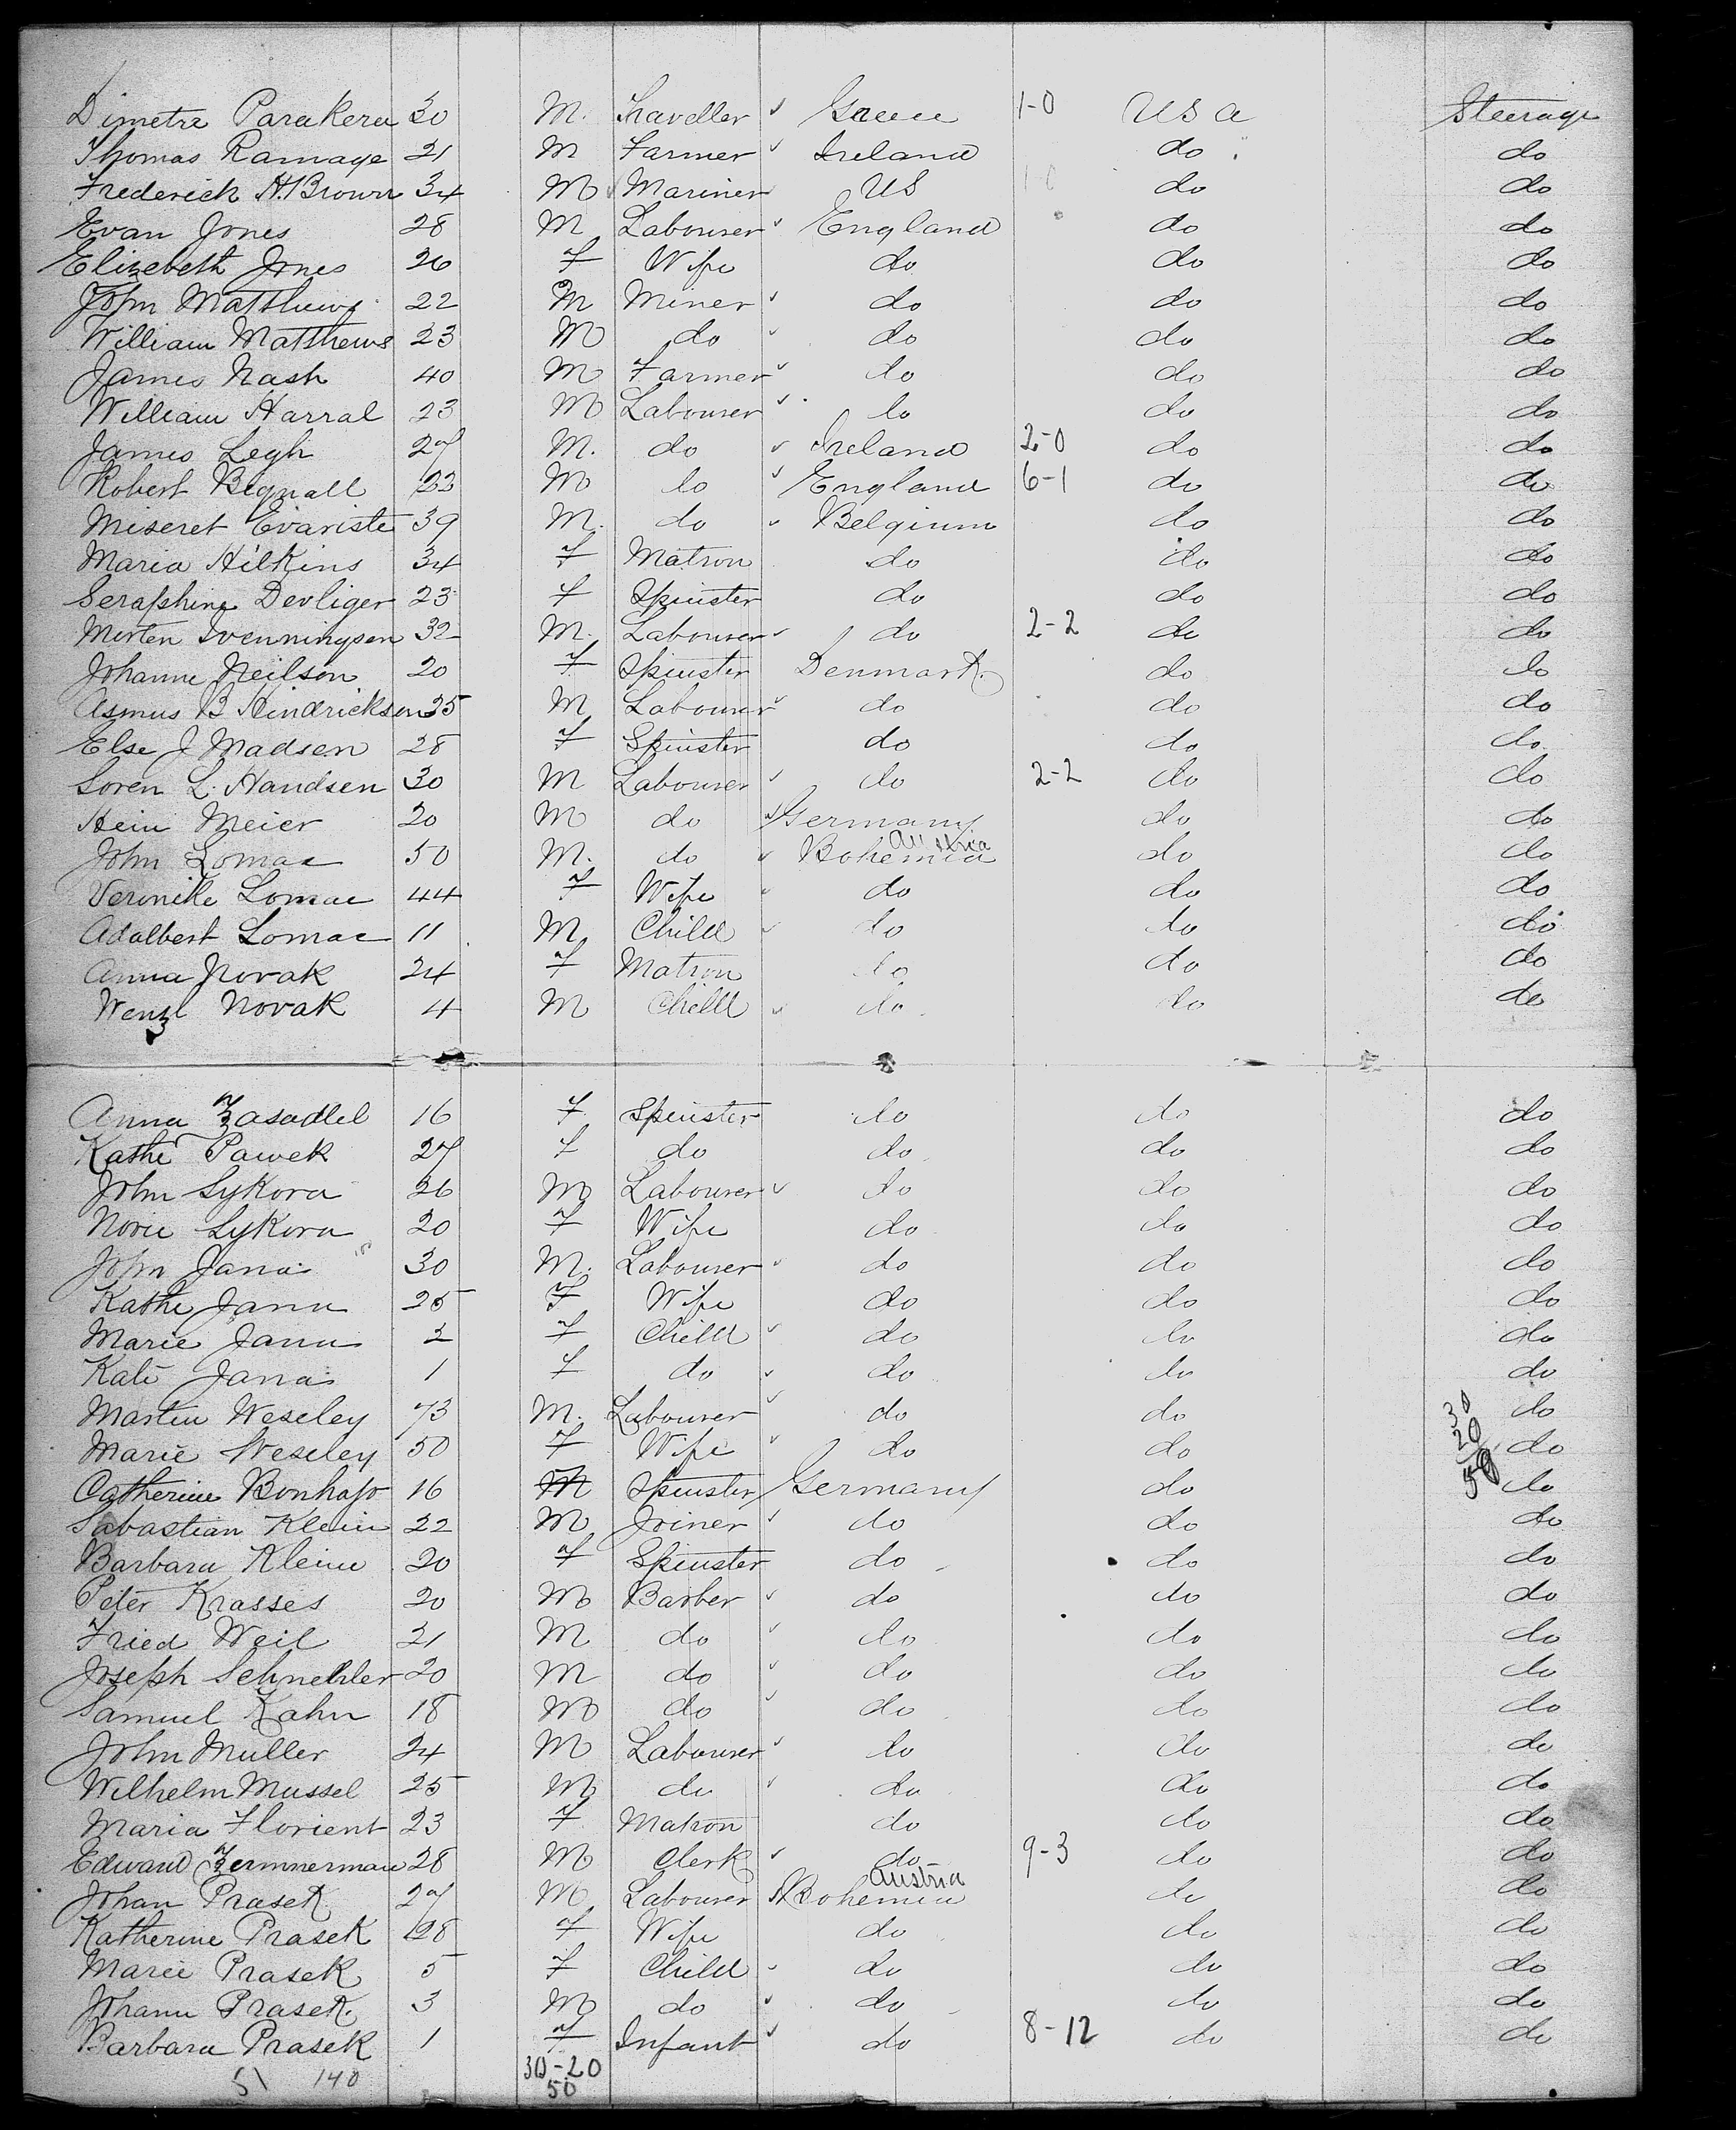 Dimetre Parakera 30 M. Traveller ✓ Greece 1-0 U S a Steerage
Thomas Ramage 21 M Farmer ✓ Ireland do do
Frederick H. Brown 34 M Mariner US 1-0 do do
Evan Jones 28 M Labourer ✓ England do do
Elizebeth Jones 26 F Wife do do do
John Matthews 22 M Miner ✓ do do do
William Matthews 23 M do ✓ do do do
James Nash 40 M Farmer ✓ do do do
William Harral 23 M Labourer ✓ do do do
James Legh 27 M. do ✓ Ireland 2-0 do do
Robert Bignall 23 M do ✓ England 6-1 do do
Miseret Evariste 39 M. do ✓ Belgium do do
Maria Hilkins 34 F Matron do do do
Seraphine Devliger 23 F Spinster do do do
Morten Svenningsen 32 M. Labourer ✓ do 2-2 do do
Johanne Neilson 20 F Spinster Denmark. do do
Asmus B Hindricksen 35 M Labourer ✓ do do do
Else J Madsen 28 F Spinster do do do
Soren L. Handsen 30 M Labourer ✓ do 2-2 do do
Hein Meier 20 M do ✓ Germany do do
John Lomac 50 M. do ✓ Bohemia Austria do do
Veronike Lomac 44 F Wife ✓ do do do
Adalbert Lomac 11 M Child ✓ do do do
Anna Novak 24 F Matron do do do
Wenzl Novak 4 M Child ✓ do do do
Anna Zasadlel 16 F Spinster do do do
Kathe Pawek 27 F do do do do
John Sykora 26 M Labourer ✓ do do do
Norie Sykora 20 F Wife do do do
John Jana 30 M. Labourer ✓ do do do
Kathe Jana 25 F Wife do do do
Marie Jana 2 F Child ✓ do do do
Kate Jana 1 F do ✓ do do do
Martin Weseley 73 M. Labourer ✓ do do 30 do
Marie Weseley 50 F Wife ✓ do do 20 do
Catherine Bonhapo 16 M Spinster Germany do 50 do
Sabastian Klein 22 M Joiner ✓ do do do
Barbara Klein 20 F Spinster do do do
Peter Krasses 20 M Barber ✓ do do do
Fried Weil 21 M do ✓ do do do
Joseph Schnebler 20 M do ✓ do do do
Samuel Kahn 18 M do ✓ do do do
John Muller 24 M Labourer ✓ do do do
Wilhelm Mussel 25 M do ✓ do do do
Maria Florient 23 F Matron do do do
Edward Zermnerman 28 M Clerk ✓ do 9-3 do do
Johan Prasek 27 M Labourer ✓ Bohemia Austria do do
Katherine Prasek 28 F Wife do do do
Marie Prasek 5 F Child ✓ do do do
Johann Prasek 3 M do ✓ do do do
Barbara Prasek 1 F Infant ✓ do 8-12 do do
51 140 30-20
50